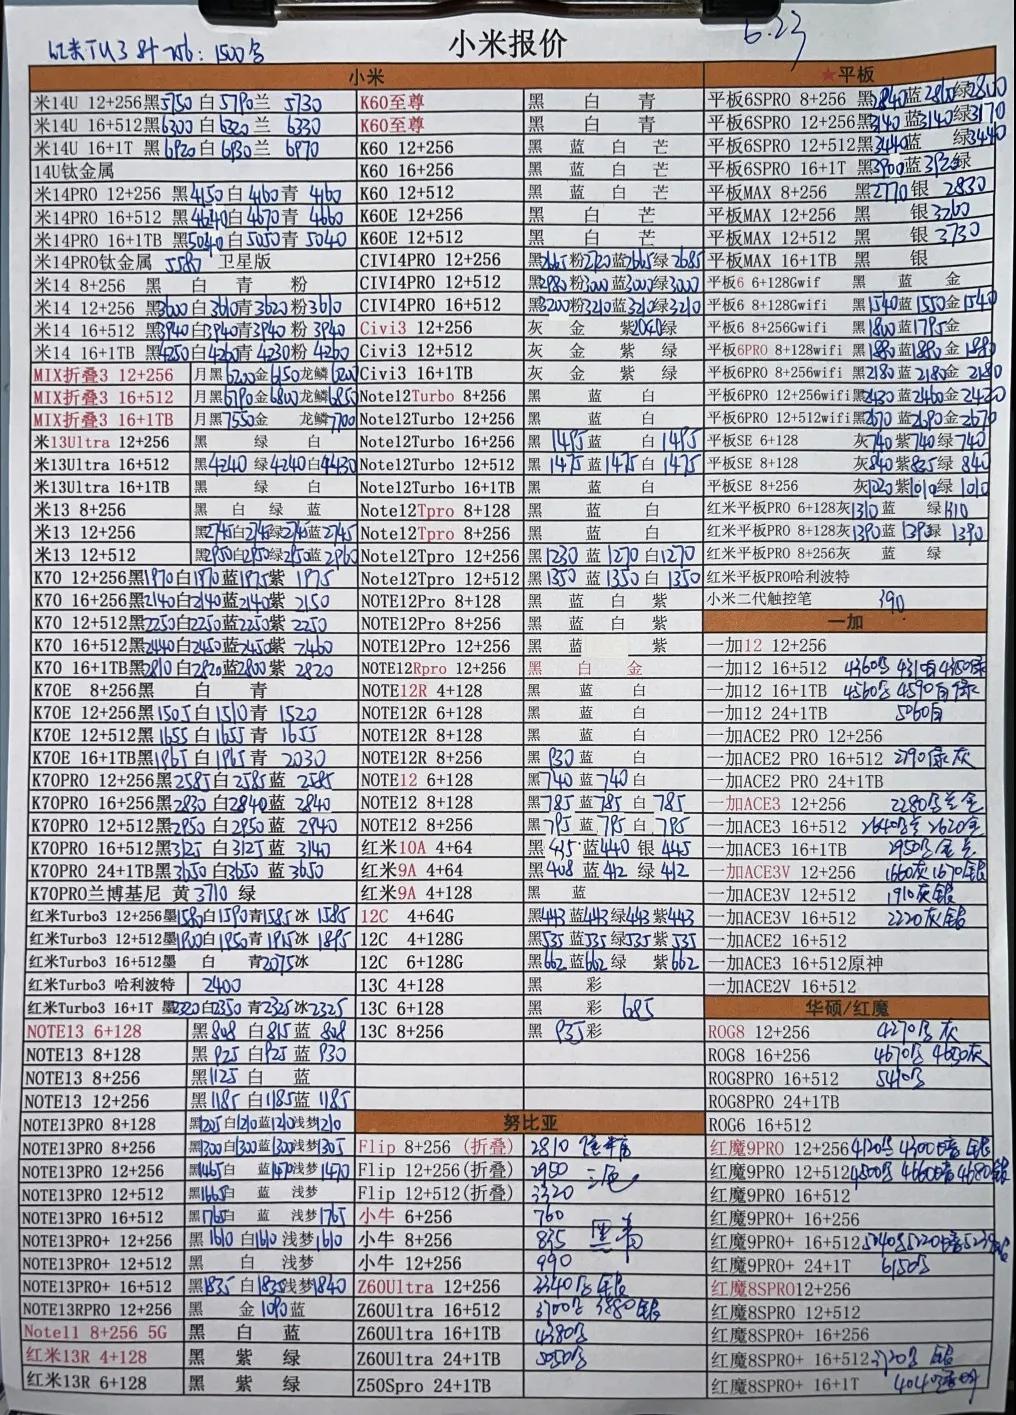 红米TU3 8+256:1500
小米报价
6.23
小米
米14U 12+256黑5750 白5790兰 5730
米14U 16+512黑6300 白6320 兰 6330
米14U 16+1T 黑6920白6930兰 6970
14U钛金属
米14PRO 12+256 黑4150白4160青 4160
米14PRO 16+512 黑4640白4670青 4660
米14PRO 16+1TB 黑5040白5050青 5040
米14PRO钛金属 5580 卫星版
米14 8+256 黑 白 青 粉
米14 12+256 黑3600白3610青3620粉3610
米14 16+512 黑3940白3940青3940 粉 3940
米14 16+1TB 黑4250白4260青 4230粉 4260
MIX折叠3 12+256 月黑6200金6150龙鳞6200
MIX折叠3 16+512 月黑6790金6800龙鳞6850
MIX折叠3 16+1TB 月黑7550金 龙鳞7700
米13Ultra 12+256 黑 绿 白
米13Ultra 16+512 黑4240 绿4240白4430
米13Ultra 16+1TB 黑 绿 白
米13 8+256 黑 白 绿 蓝
米13 12+256 黑2745白2745绿2745蓝2745
米13 12+512 黑2950白2950绿2950蓝2960
K70 12+256黑1970白1970蓝1975紫 1975
K70 16+256黑2140白2140蓝2140紫 2150
K70 12+512黑2250白2250蓝2250紫 2250
K70 16+512黑2440白2450蓝2450紫 2460
K70 16+1TB黑2810 白2820蓝2800紫 2820
K70E 8+256黑 白 青
K70E 12+256黑1505白1510青 1520
K70E 12+512黑1655白1655青 1655
K70E 16+1TB黑1965白1965青 2030
K70PRO 12+256黑2585白2585蓝 2585
K70PRO 16+256黑2830白2840蓝 2840
K70PRO 12+512黑2950 白2950 蓝 2940
K70PRO 16+512黑3125 白3125 蓝 3140
K70PRO 24+1TB黑3650白3650 蓝 3650
K70PRO兰博基尼 黄3710 绿
红米Turbo3 12+256墨1580白1590青1585冰 1585
红米Turbo3 12+512墨1900白1950青1915冰 1895
红米Turbo3 16+512墨 白 青2075冰
红米Turbo3 哈利波特 2400
红米Turbo3 16+1T 墨2320白2350 青2325 冰2325
NOTE13 6+128 黑808 白815蓝 808
NOTE13 8+128 黑925 白925蓝 930
NOTE13 8+256 黑1125 白 蓝
NOTE13 12+256 黑1185 白1185蓝 1185
NOTE13PRO 8+128 黑1205白1210蓝1210浅梦1210
NOTE13PRO 8+256 黑1300白1300蓝1300浅梦1305
NOTE13PRO 12+256 黑1465白 蓝1470浅梦1470
NOTE13PRO 12+512 黑1665白 蓝 浅梦
NOTE13PRO 16+512 黑1765白 蓝 浅梦1765
NOTE13PRO+ 12+256 黑1610 白1610 浅梦1610
NOTE13PRO+ 12+512 黑 白 浅梦
NOTE13PRO+ 16+512 黑1835 白1835浅梦1840
NOTE13RPRO 12+256 黑 金1090蓝
Note11 8+256 5G 黑 白 蓝
红米13R 4+128 黑 紫 绿
红米13R 6+128 黑 紫 绿
K60至尊 黑 白 青
K60至尊 黑 白 青
K60 12+256 黑 蓝 白 芒
K60 16+256 黑 蓝 白 芒
K60 12+512 黑 蓝 白 芒
K60E 12+256 黑 白 芒
K60E 12+512 黑 白 芒
CIVI4PRO 12+256 黑2665粉2720蓝2665绿2685
CIVI4PRO 12+512 黑2980粉3000蓝3000绿3000
CIVI4PRO 16+512 黑3200粉3210蓝3210绿3210
Civi3 12+256 灰 金 紫2040绿
Civi3 12+512 灰 金 紫 绿
Civi3 16+1TB 灰 金 紫 绿
Note12Turbo 8+256 黑 蓝 白
Note12Turbo 12+256 黑 蓝 白
Note12Turbo 16+256 黑 1495蓝 白 1495
Note12Turbo 12+512 黑 1475蓝 1475白 1475
Note12Turbo 16+1TB 黑 蓝 白
Note12Tpro 8+128 黑 蓝 白
Note12Tpro 8+256 黑 蓝 白
Note12Tpro 12+256 黑1230 蓝 1270 白1270
Note12Tpro 12+512 黑1350 蓝 1350 白 1350
NOTE12Pro 8+128 黑 蓝 白 紫
NOTE12Pro 8+256 黑 蓝 白 紫
NOTE12Pro 12+256 黑 蓝 紫
NOTE12Rpro 12+256 黑 白 金
NOTE12R 4+128 黑 蓝 白
NOTE12R 6+128 黑 蓝 白
NOTE12R 8+128 黑 蓝 白
NOTE12R 8+256 黑 930蓝 白
NOTE12 6+128 黑740 蓝 740白
NOTE12 8+128 黑785 蓝785 白 785
NOTE12 8+256 黑795 蓝 795 白 795
红米10A 4+64 黑 435 蓝440 银 445
红米9A 4+64 黑408 蓝412 绿412
红米9A 4+128 黑 蓝
12C 4+64G 黑443 蓝443绿443 紫443
12C 4+128G 黑535 蓝535 绿535 紫535
12C 6+128G 黑662 蓝662 绿 紫662
13C 4+128 黑 彩
13C 6+128 黑 彩 685
13C 8+256 黑 935彩
努比亚
Flip 8+256 (折叠) 2810
Flip 12+256(折叠) 2950 三色
Flip 12+512(折叠) 3320
小牛 6+256 760
小牛 8+256 835 黑 青
小牛 12+256 990
Z60Ultra 12+256 3340 银
Z60Ultra 16+512 3700 3880银
Z60Ultra 16+1TB 4380
Z60Ultra 24+1TB 5050
Z50Spro 24+1TB
★平板
平板6SPRO 8+256 黑2840蓝2810绿2800
平板6SPRO 12+256黑3140蓝3140绿3170
平板6SPRO 12+512黑3440蓝 绿3440
平板6SPRO 16+1T 黑3900蓝3920绿
平板MAX 8+256 黑2770银 2830
平板MAX 12+256 黑 银3260
平板MAX 12+512 黑 银 3730
平板MAX 16+1TB 黑 银
平板6 6+128Gwif 黑 蓝 金
平板6 8+128Gwifi 黑1540蓝 1550金1540
平板6 8+256Gwifi 黑1800蓝1795金
平板6PRO 8+128wifi 黑1880蓝1880金 1880
平板6PRO 8+256wifi 黑2180蓝 2180金 2180
平板6PRO 12+256wifi黑2430蓝2460金 2420
平板6PRO 12+512wifi黑2670蓝2690金 2670
平板SE 6+128 灰740紫740绿740
平板SE 8+128 灰840紫835绿 840
平板SE 8+256 灰1020紫1010绿 1010
红米平板PRO 6+128灰1310 蓝 绿1310
红米平板PRO 8+128灰1390蓝 1390绿 1390
红米平板PRO 8+256灰 蓝 绿
红米平板PRO哈利波特
小米二代触控笔 390
一加
一加12 12+256
一加12 16+512 4360 4310白 4350绿
一加12 16+1TB 4560 4590白绿
一加12 24+1TB 5060白
一加ACE2 PRO 12+256
一加ACE2 PRO 16+512 2790绿灰
一加ACE2 PRO 24+1TB
一加ACE3 12+256 2280 兰金
一加ACE3 16+512 2640 兰2620金
一加ACE3 16+1TB 2950 金兰
一加ACE3V 12+256 1660灰 1670银
一加ACE3V 12+512 1910灰银
一加ACE3V 16+512 2220灰银
一加ACE2 16+512
一加ACE3 16+512原神
一加ACE2V 16+512
华硕/红魔
ROG8 12+256 4270 灰
ROG8 16+256 4670 4650灰
ROG8PRO 16+512 5410
ROG8PRO 24+1TB
ROG6 16+512
红魔9PRO 12+256 4120 4300 银
红魔9PRO 12+512 4500 4600 4680银
红魔9PRO 16+512
红魔9PRO+ 16+256
红魔9PRO+ 16+512 5220
红魔9PRO+ 24+1T 6150
红魔8SPRO12+256
红魔8SPRO 12+512
红魔8SPRO+ 16+256
红魔8SPRO+ 16+512 银
红魔8SPRO+ 16+1T 4040